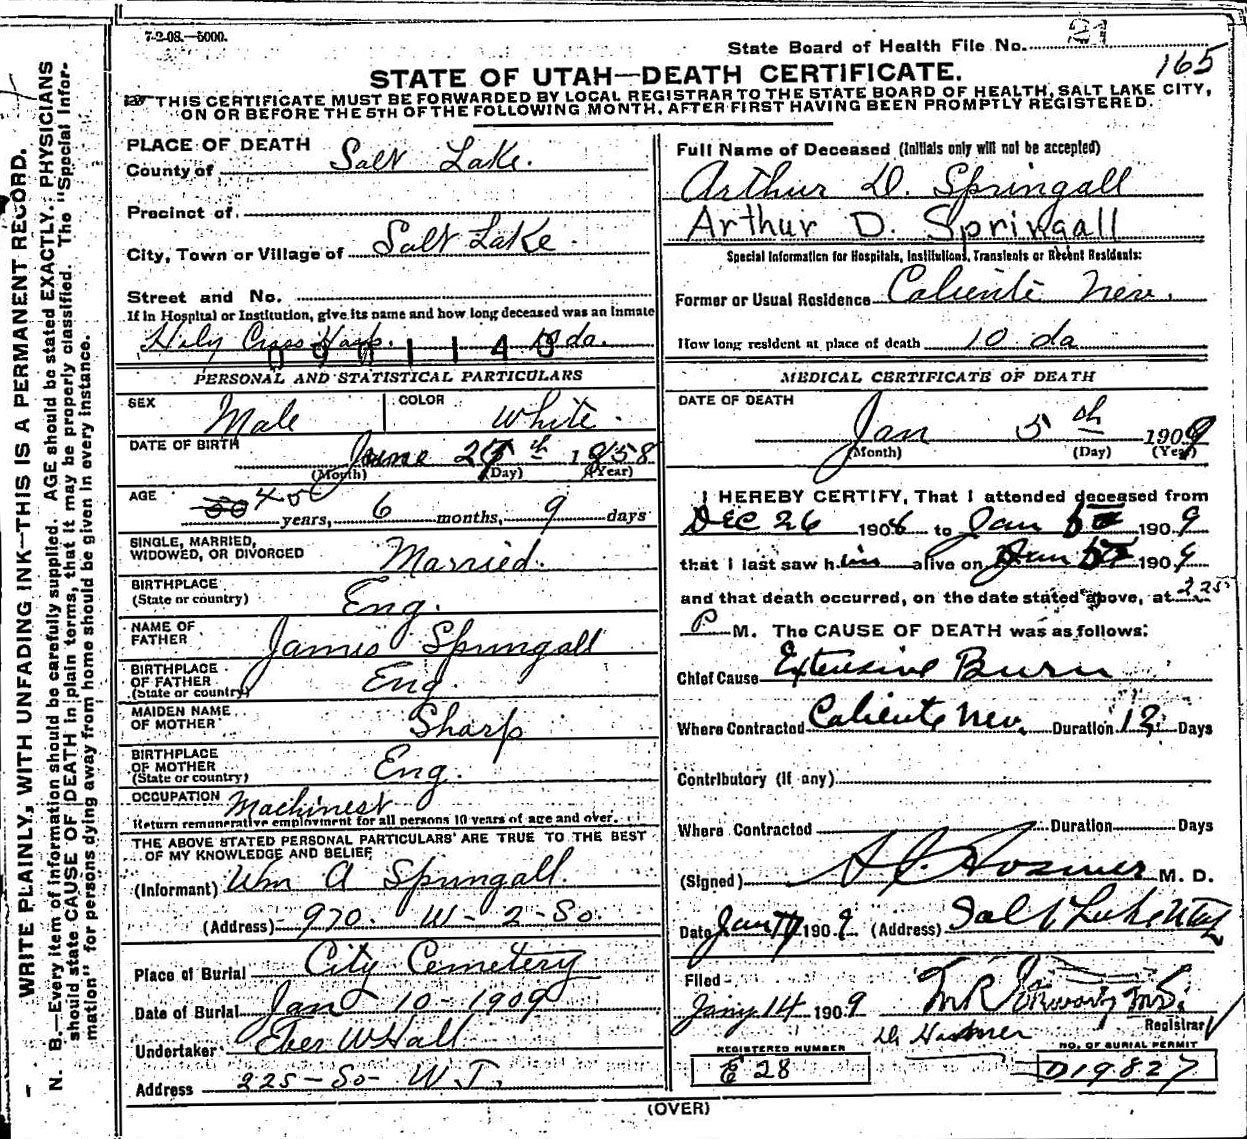 7-2-08.—5000.
State Board of Health File No. 21
165
STATE OF UTAH—DEATH CERTIFICATE.
THIS CERTIFICATE MUST BE FORWARDED BY LOCAL REGISTRAR TO THE STATE BOARD OF HEALTH, SALT LAKE CITY,
ON OR BEFORE THE 5TH OF THE FOLLOWING MONTH, AFTER FIRST HAVING BEEN PROMPTLY REGISTERED.
WRITE PLAINLY, WITH UNFADING INK—THIS IS A PERMANENT RECORD.
N. B.—Every item of information should be carefully supplied. AGE should be stated EXACTLY. PHYSICIANS
should state CAUSE OF DEATH in plain terms, that it may be properly classified. The "Special Infor-
mation" for persons dying away from home should be given in every instance.
PLACE OF DEATH
County of Salt Lake.
Precinct of
City, Town or Village of Salt Lake.
Street and No.
If in Hospital or Institution, give its name and how long deceased was an inmate
Holy Cross Hosp. 10 da.
PERSONAL AND STATISTICAL PARTICULARS
SEX Male COLOR White.
DATE OF BIRTH June th 1858
(Month) (Day) (Year)
AGE
years, 6 months, 9 days
SINGLE, MARRIED,
WIDOWED, OR DIVORCED Married.
BIRTHPLACE
(State or country) Eng.
NAME OF
FATHER James Springall
BIRTHPLACE
OF FATHER
(State or country) Eng.
MAIDEN NAME
OF MOTHER Sharp
BIRTHPLACE
OF MOTHER
(State or country) Eng.
OCCUPATION Machinest
Return remunerative employment for all persons 10 years of age and over.
THE ABOVE STATED PERSONAL PARTICULARS ARE TRUE TO THE BEST
OF MY KNOWLEDGE AND BELIEF
(Informant) Wm A Springall.
(Address) 970. W- 2-So.
Place of Burial City Cemetery
Date of Burial Jan 10-1909
Undertaker Eber W Hall
Address 225-So- W.T.
Full Name of Deceased (Initials only will not be accepted)
Arthur D. Springall
Arthur D. Springall
Special Information for Hospitals, Institutions, Transients or Recent Residents:
Former or Usual Residence Caliente Nev.
How long resident at place of death 10 da
MEDICAL CERTIFICATE OF DEATH
DATE OF DEATH
Jan 5th 1909
(Month) (Day) (Year)
I HEREBY CERTIFY, That I attended deceased from
DEC 26 1908 to Jan 5 1909
that I last saw him alive on Jan 5 1909
and that death occurred, on the date stated above, at 2.25
P M. The CAUSE OF DEATH was as follows:
Chief Cause Extensive Burn
Where Contracted Caliente Nev. Duration Days
Contributory (if any)
Where Contracted Duration Days
(Signed) Hosmer M. D.
Date Jan 1909. (Address) Salt Lake Utah
Filed
Jany 14 1909
Registrar
REGISTERED NUMBER
E 28
NO. OF BURIAL PERMIT
D19827
(OVER)